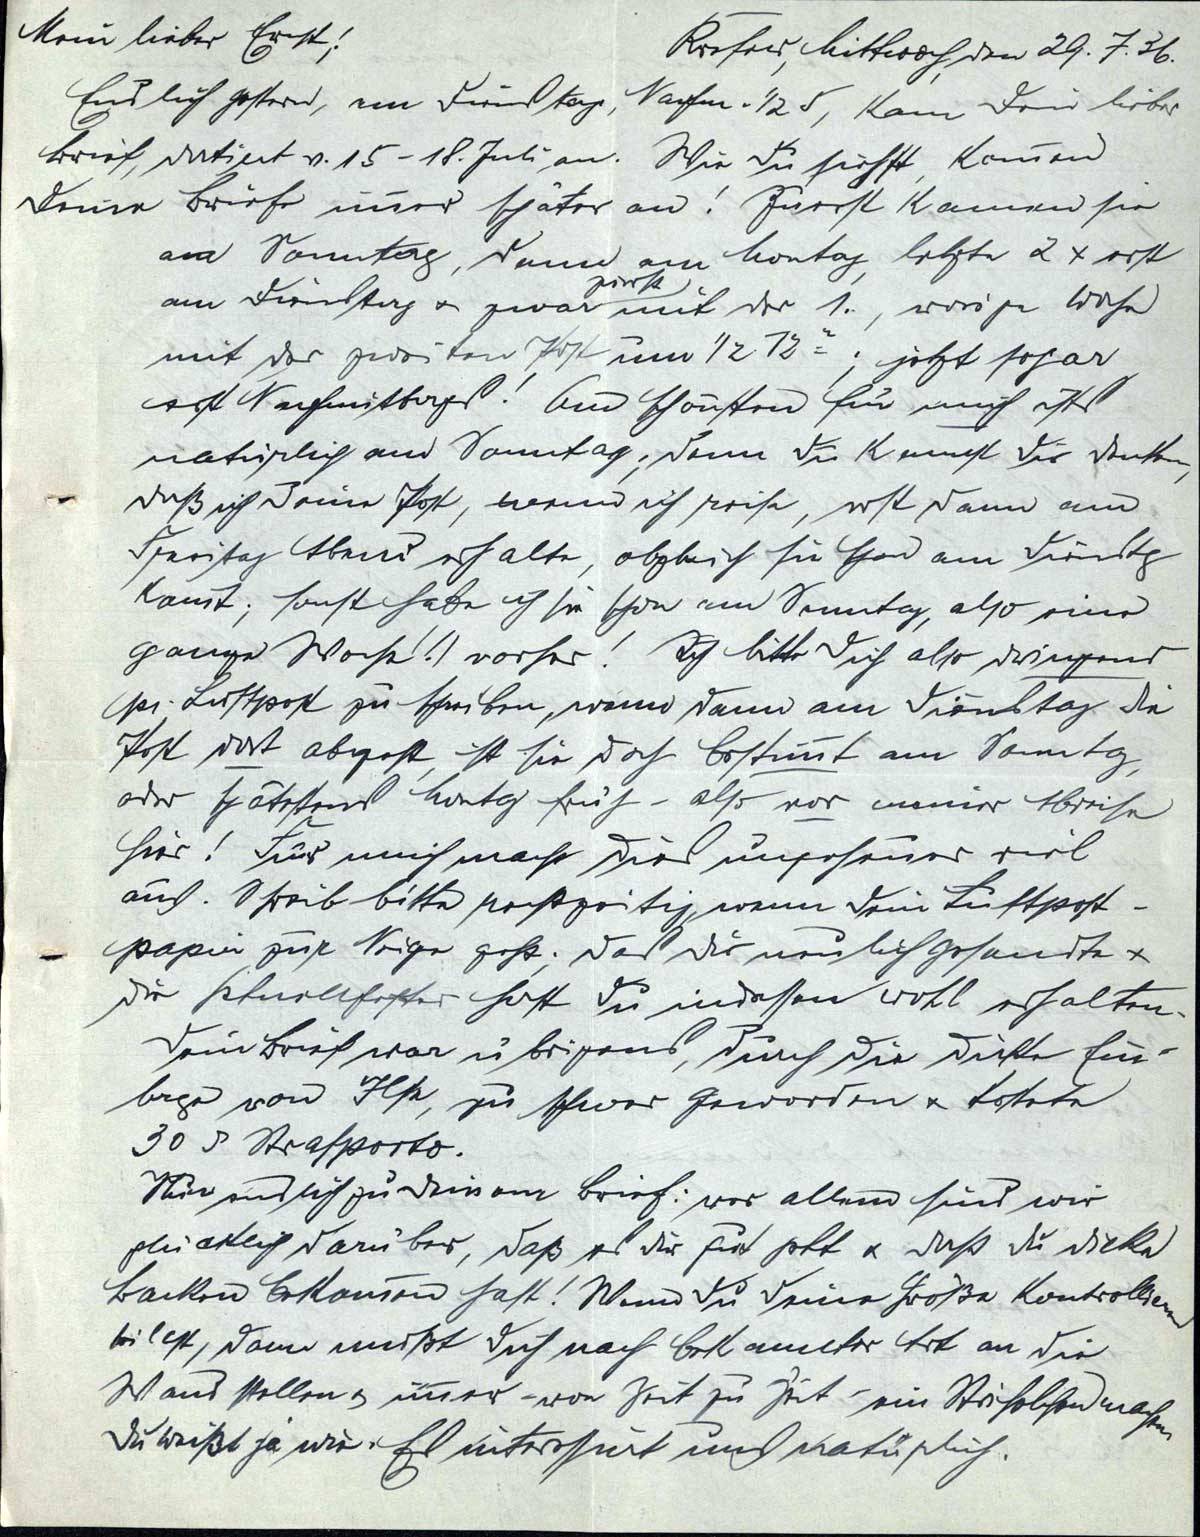 Mein lieber Ernst! Krefeld, Mittwoch, den 29.7.36.
Endlich gestern, am Dienstag, Nachm. 1/2 5, kam Dein lieber
Brief, datiert v. 15-18. Juli, an. Wie Du siehst, kom̄en
Deine Briefe im̄er später an! Zuerst kamen sie
am Sonntag, dann am Montag, letzte 2 x erst
am Dienstag & zwar zuerst mit der 1., vorige Woche
mit der zweiten Post um 1/2 12; jetzt sogar
erst Nachmittags! Am schönsten für mich ists
natürlich am Sonntag; denn Du kannst Dir denken,
daß ich Deine Post, wenn ich reise, erst dann am
Freitag Abend erhalte, obgleich sie schon am Dienstg
kom̄t; sonst habe ich sie schon am Sonntag, also eine
ganze Woche(!) vorher! Ich bitte Dich also dringend
pr. Luftpost zu schreiben, wenn dann am Dienstag die
Post dort abgeht, ist sie doch bestim̄t am Sonntg,
oder spätestens Montg früh - also vor meiner Abreise
hier! Für mich macht dies ungeheuer viel
aus. Schreib bitte rechtzeitig, wenn Dein Luftpost-
papier zur Neige geht; das Dir neulich gesandte &
die Schnellhefter hast Du indessen wohl erhalten.
Dein Brief war übrigens, durch die dicke Ein-
lage von Ilse, zu schwer geworden & kostete
30 ₰ Strafporto.
Nun endlich zu Deinem Brief: vor allem sind wir
glücklich darüber, daß es Dir gut geht & daß Du dicke
Backen bekom̄en hast! Wenn Du Deine Größe kontrollieren
willst, dann mußt Dich nach bekannter Art an die
Wand stellen & im̄er - von Zeit zu Zeit - ein Strichelchen machen,
Du weißt ja wie. Es interessiert uns natürlich.